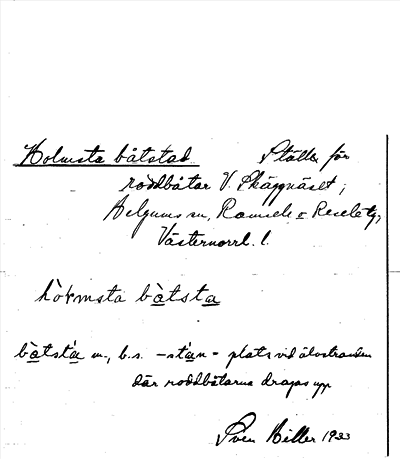 Holmsta båtstad   Ställe för
roddbåtar V. Skäggnäset,
Helgums sn, Ramsele o Resele tg,
Västernorrl. l.
hòłmsta bàtsta
bàtsta m., b.s. -stan = plats vid älvstranden
där roddbåtarna dragas upp
Sven Hiller 1933